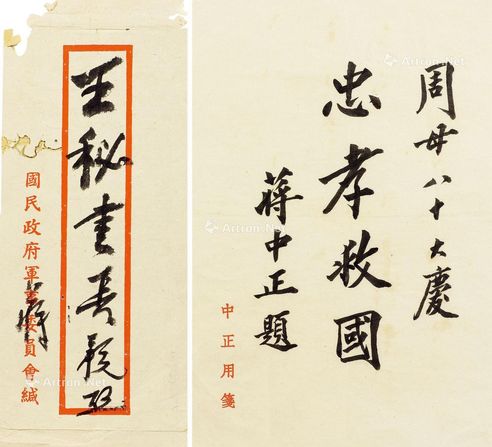 周母八十大慶
忠孝救國
蔣中正題
中正用箋
王秘書
國民政府軍事委員會緘
蔣
Artron.Net
Artron.Net
Artron.Net